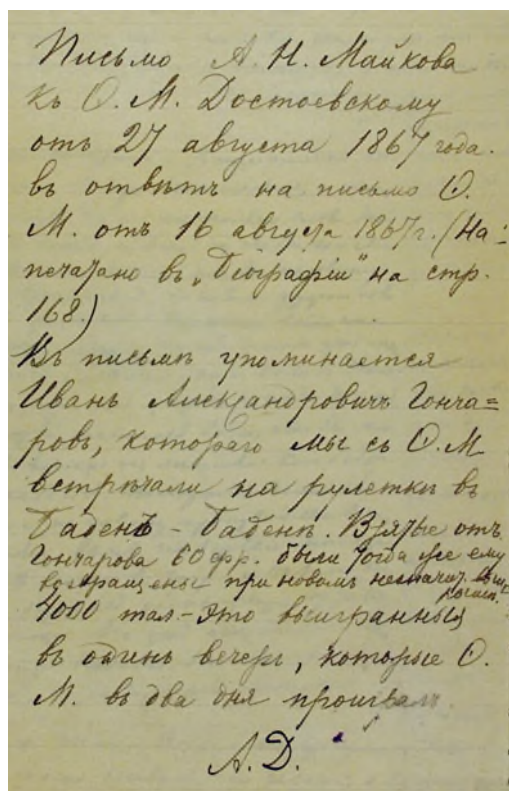 Письмо А. Н. Майкова
къ Ѳ. М. Достоевскому
отъ 27 августа 1867 года.
въ отвѣтъ на письмо Ѳ.
М. отъ 16 августа 1867г. (На-
печатано въ „Біографіи" на стр.
168.)
Въ письмѣ упоминается
Иванъ Александровичъ Гонча=
ровъ, котораго мы съ Ѳ. М
встрѣчали на рулеткѣ въ
Баденъ - Баденѣ. Взятые отъ
Гончарова 60 фр. были тогда же ему
возвращены при новомъ незначит.
4000 тал. - это выигранныя
въ одинъ вечеръ, которые Ѳ.
М. въ два дня проигралъ.
А. Д.